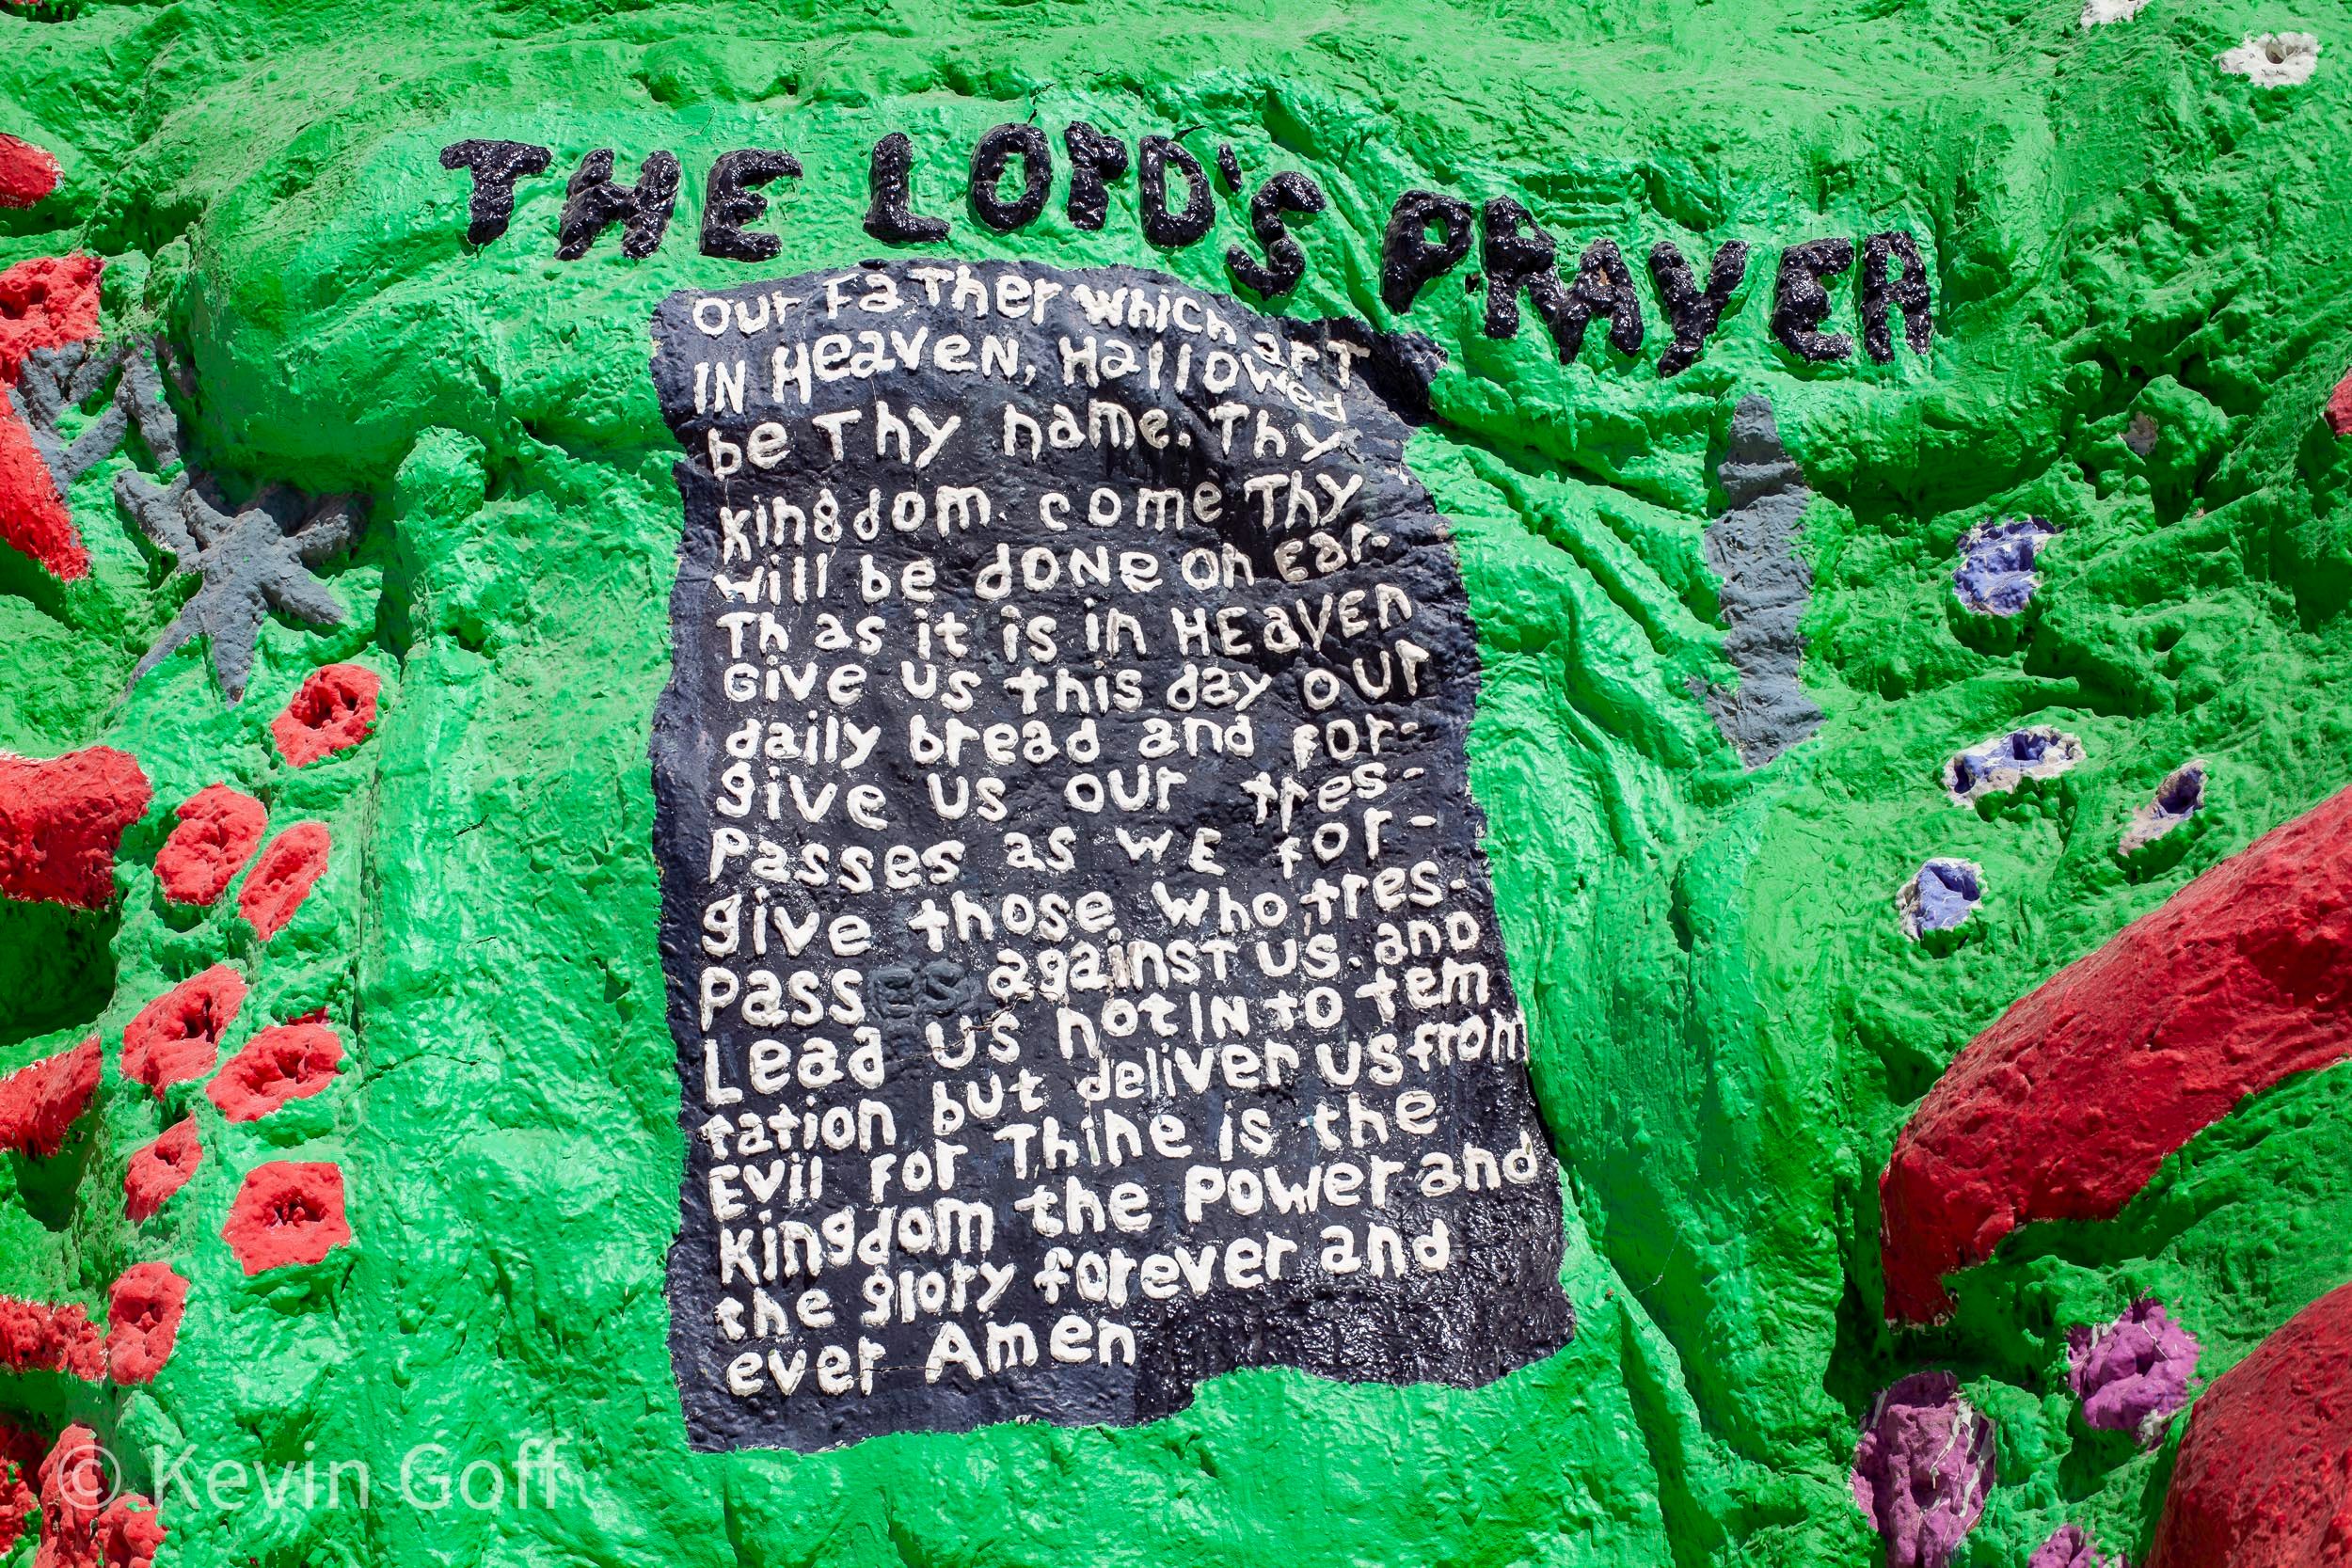 THE LOrD'S PRAYER
Our FaTher which arT
IN HeaveN, Hallowed
be Thy name. Thy
kingdom. come Thy
will be doNe on Ear-
Th as it is in HEaVEn
Give us this day our
daily bread and for-
give us our tres-
passes as wE for-
give those who tres-
passes against us. and
Lead us notIN to tem
tation but deliver us from
Evil for Thine is the
Kingdom the power and
the glory forever and
ever Amen
© Kevin Goff